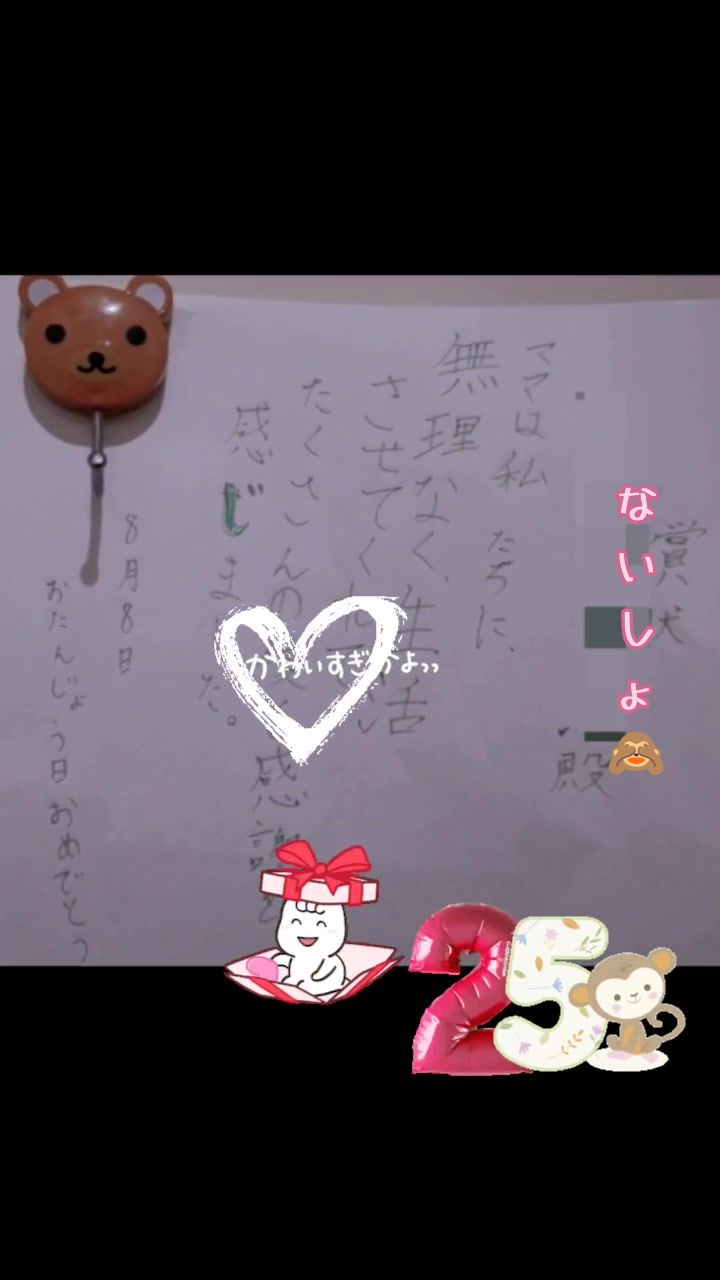 賞状
殿
ママは私たちに、
無理なく、生活
させてくれてい
たくさんの と感謝を
感じました。
8月8日
おたんじょう日おめでとう
ないしょ🙈
かわいすぎかよっっ
25